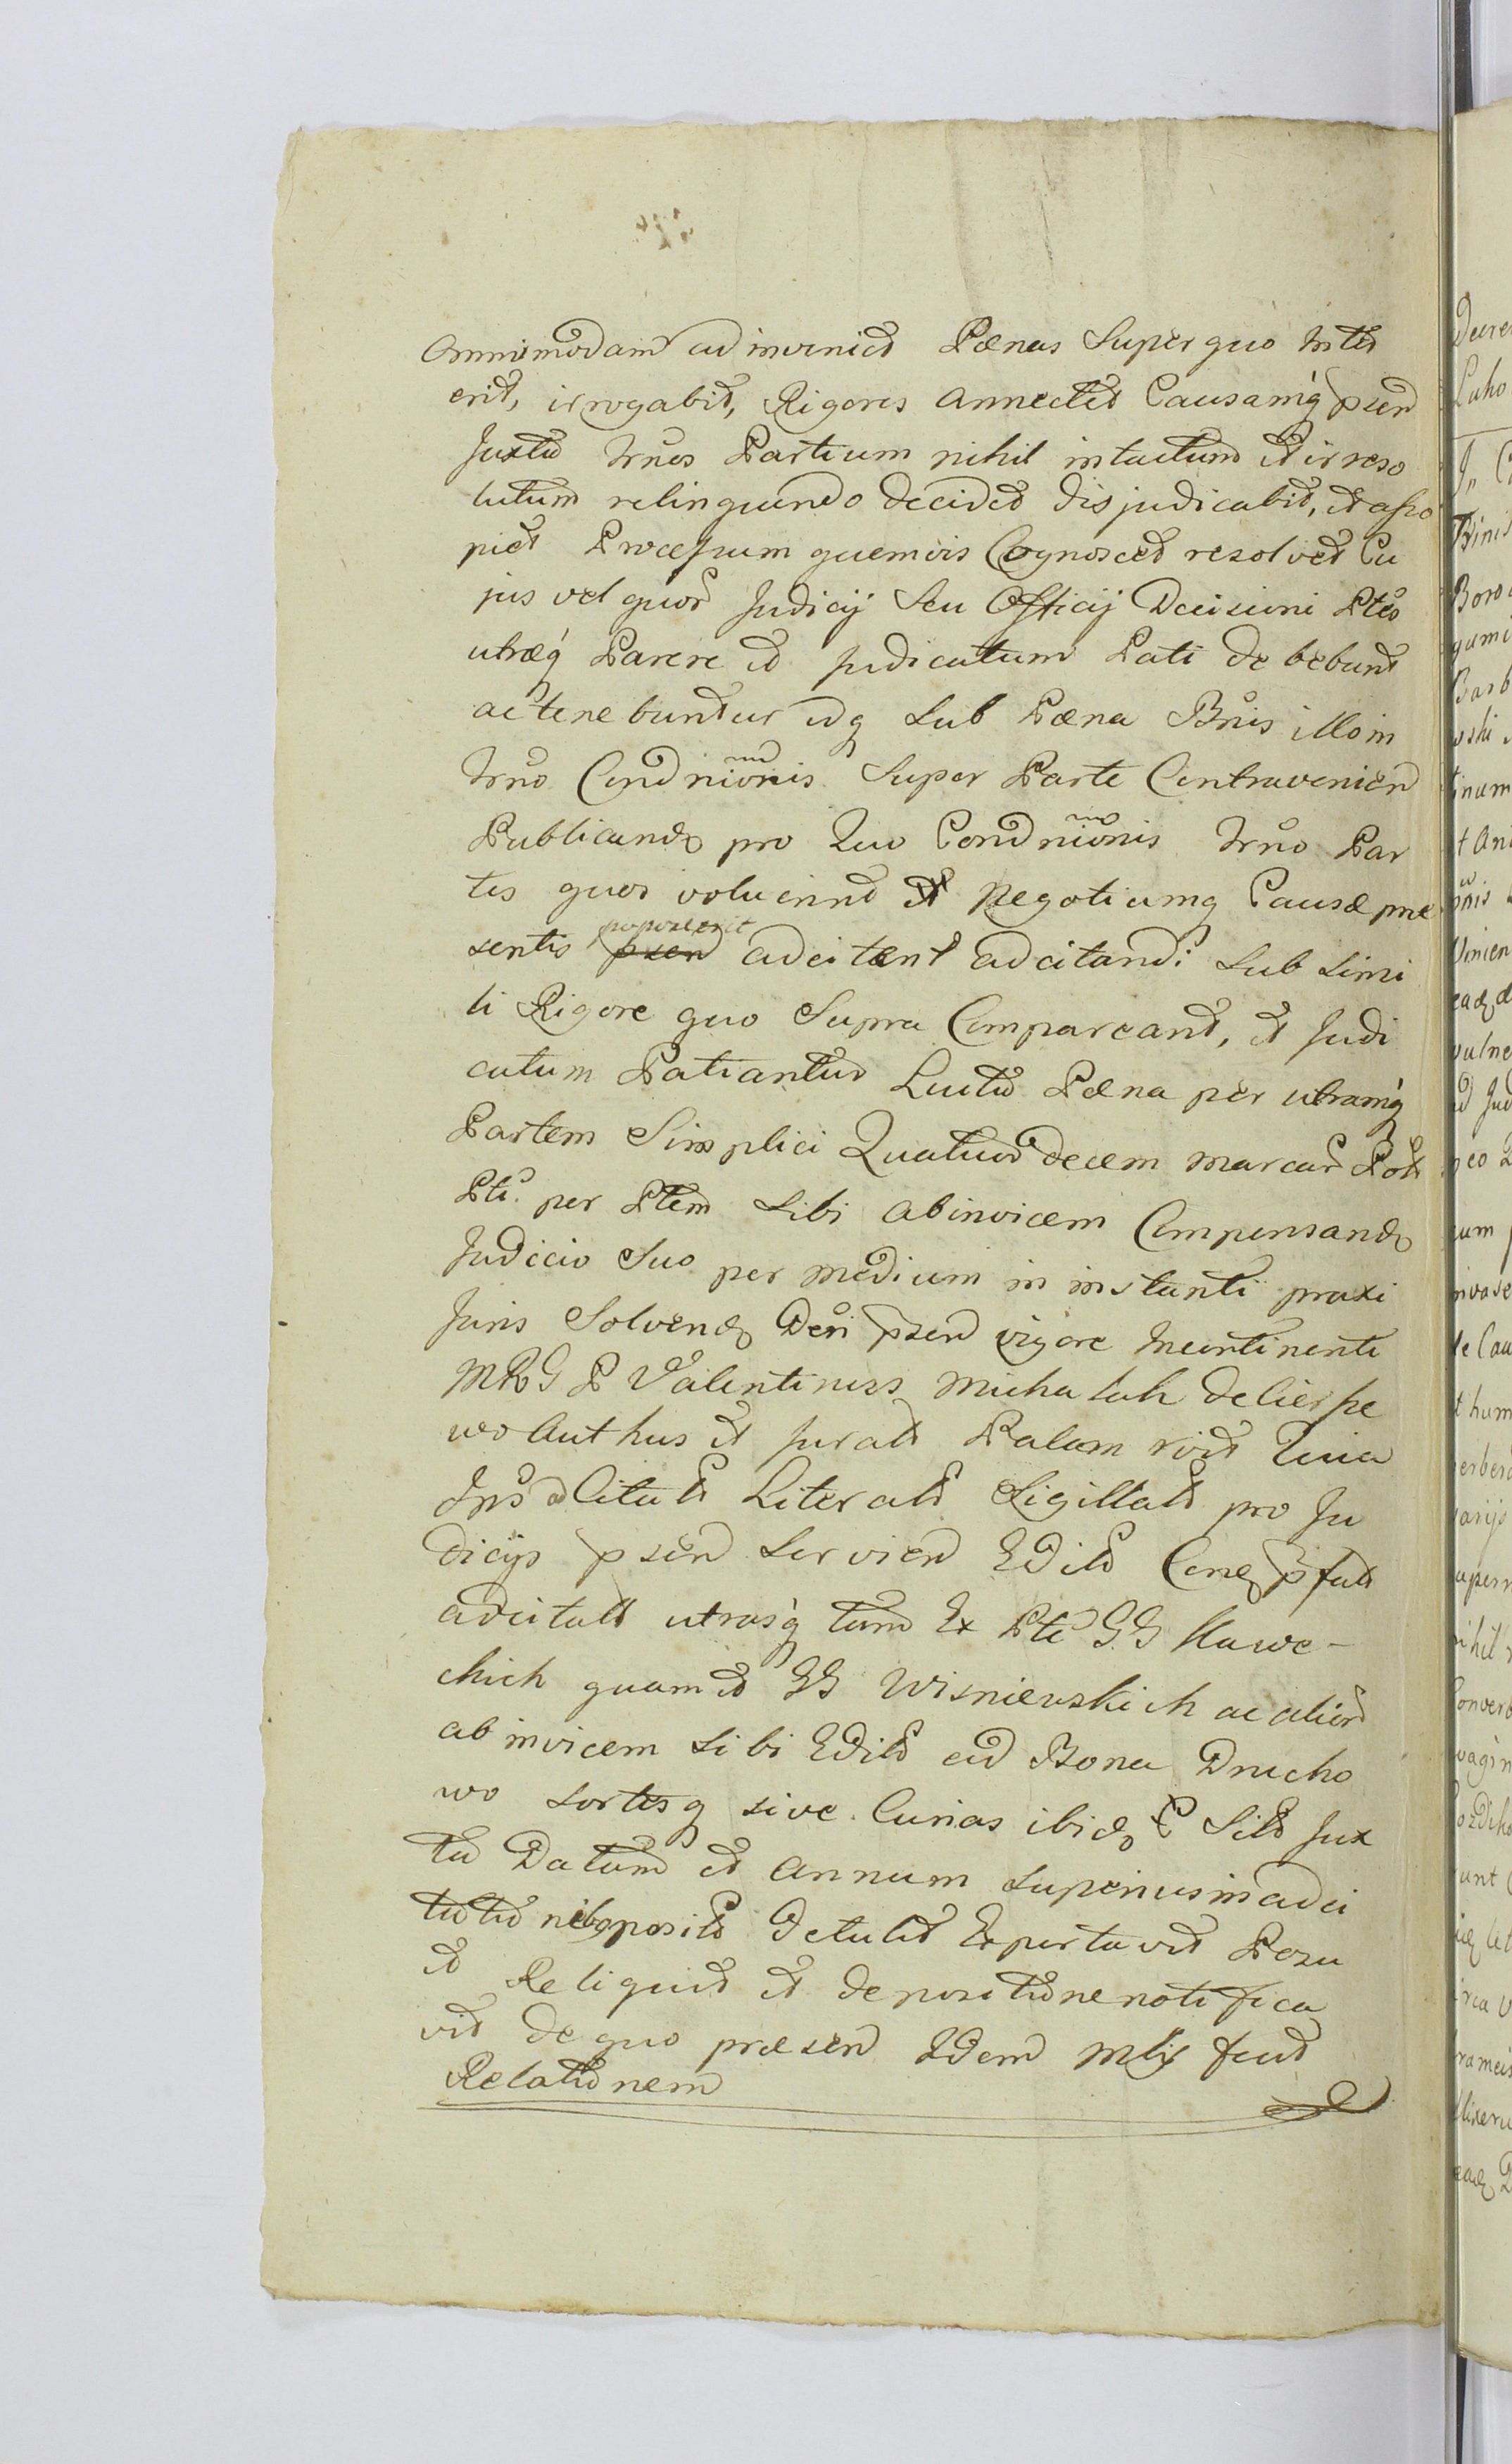 Omnimodam adinveniet Pænas Super quo Inter
erit, irrogabit, Rigores annectet Causamq́ pseñ
Juxta Trnos Partium nihil intactum et irreso
lutum relinquendo decidet disjudicabit, et asso
piet Processum quemvis Cognoscet resolvet Cu
jus vel quor Judicij Seu Officij Decisioni Ptes
utræq́ Parere et judicatum Pati debebunt
ac tenebuntur idq Sub Pæna Bnis illo in
Trno Condnionis Super Parte Contravenien
Publicand pro Quo Condnionis Trno Par
tes quos voluerint et Negotiumq Causæ præ
sentis poposcerit adcitent adcitandi Sub Simi
li Rigore quo Supra Compareant, et Judi
catum Patiantur Luita Pæna per utramq́
Partem Simplici Quatuor decem marcar Pol
Pti per Ptem Sibi abinvicem Compensand
Judicio Suo per medium in instanti praxi
Juris Solvend Den pseñ vigore Incontinenti
MRG P Valentinus Michalak de Cierpie
wo Authus et Jurat Palam rect Quia
Ipse Citat Literat Sigillat pro Ju
dicijs pseñ Servien Edit Cond
adcitatt utrasq́ tam Ex Pte GG Kawe-
ckich quam et GG Wisniewskich ac alior
abinvicem Sibi Edit ad Bona Drucho
wo Sortesq sive Curias ibid Sit Jux
ta Datum et Annum Superius in adci
tat posit Detulit Exportavit Posu
it Reliquit et de positione notifica
vit de quo præsen Idem Mlis fecit
Relationem